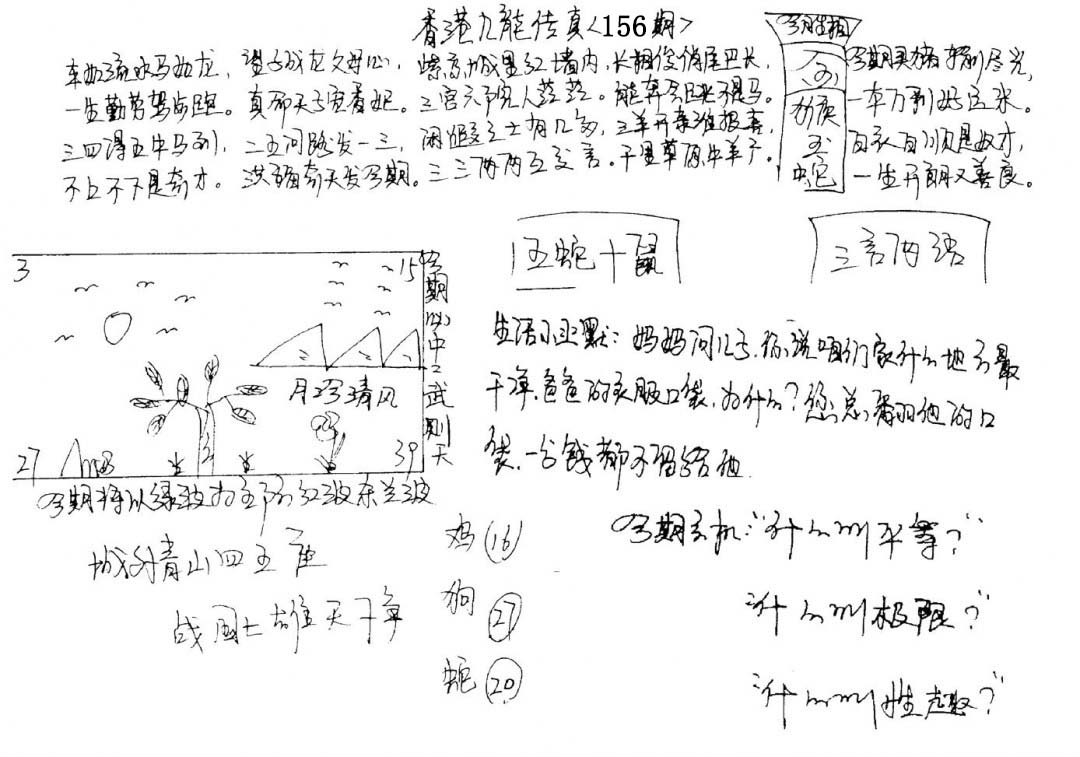 香港九龍传真〈156期〉
今期生相
车如流水马如龙，望子成龙父母心，紫京城里红墙内，长相俊俏尾巴长，
今期买猪输尽光，
一生勤劳驾与跑。真命天子宝看妃。三宫六院人茫茫。能奔会跑不是马。
一本万利好运来。
三四得五牛马到，二五问路发一三，闲暇之士有几多，三羊开泰准报喜，
百衣百顺是奴才，
不上不下是奇才。洪福齐天发今期。三三两两互发言。千里草原牛羊广。
一生开朗又善良。
蛇
五蛇十鼠
三言两语
3
15
今期必中：武则天
月 清风
27
39
2
生活小幽默：妈妈问儿子，你说咱们家什么地方最
干净，爸爸的衣服口袋，为什么？您总番羽他的口
袋，一分钱都不留给他
今期将以绿波为主防红波杀兰波
城外青山四五座
战国士雄天下争
鸡 16
狗 27
蛇 20
今期玄机："什么叫平等？"
"什么叫极限？"
"什么叫性趣？"